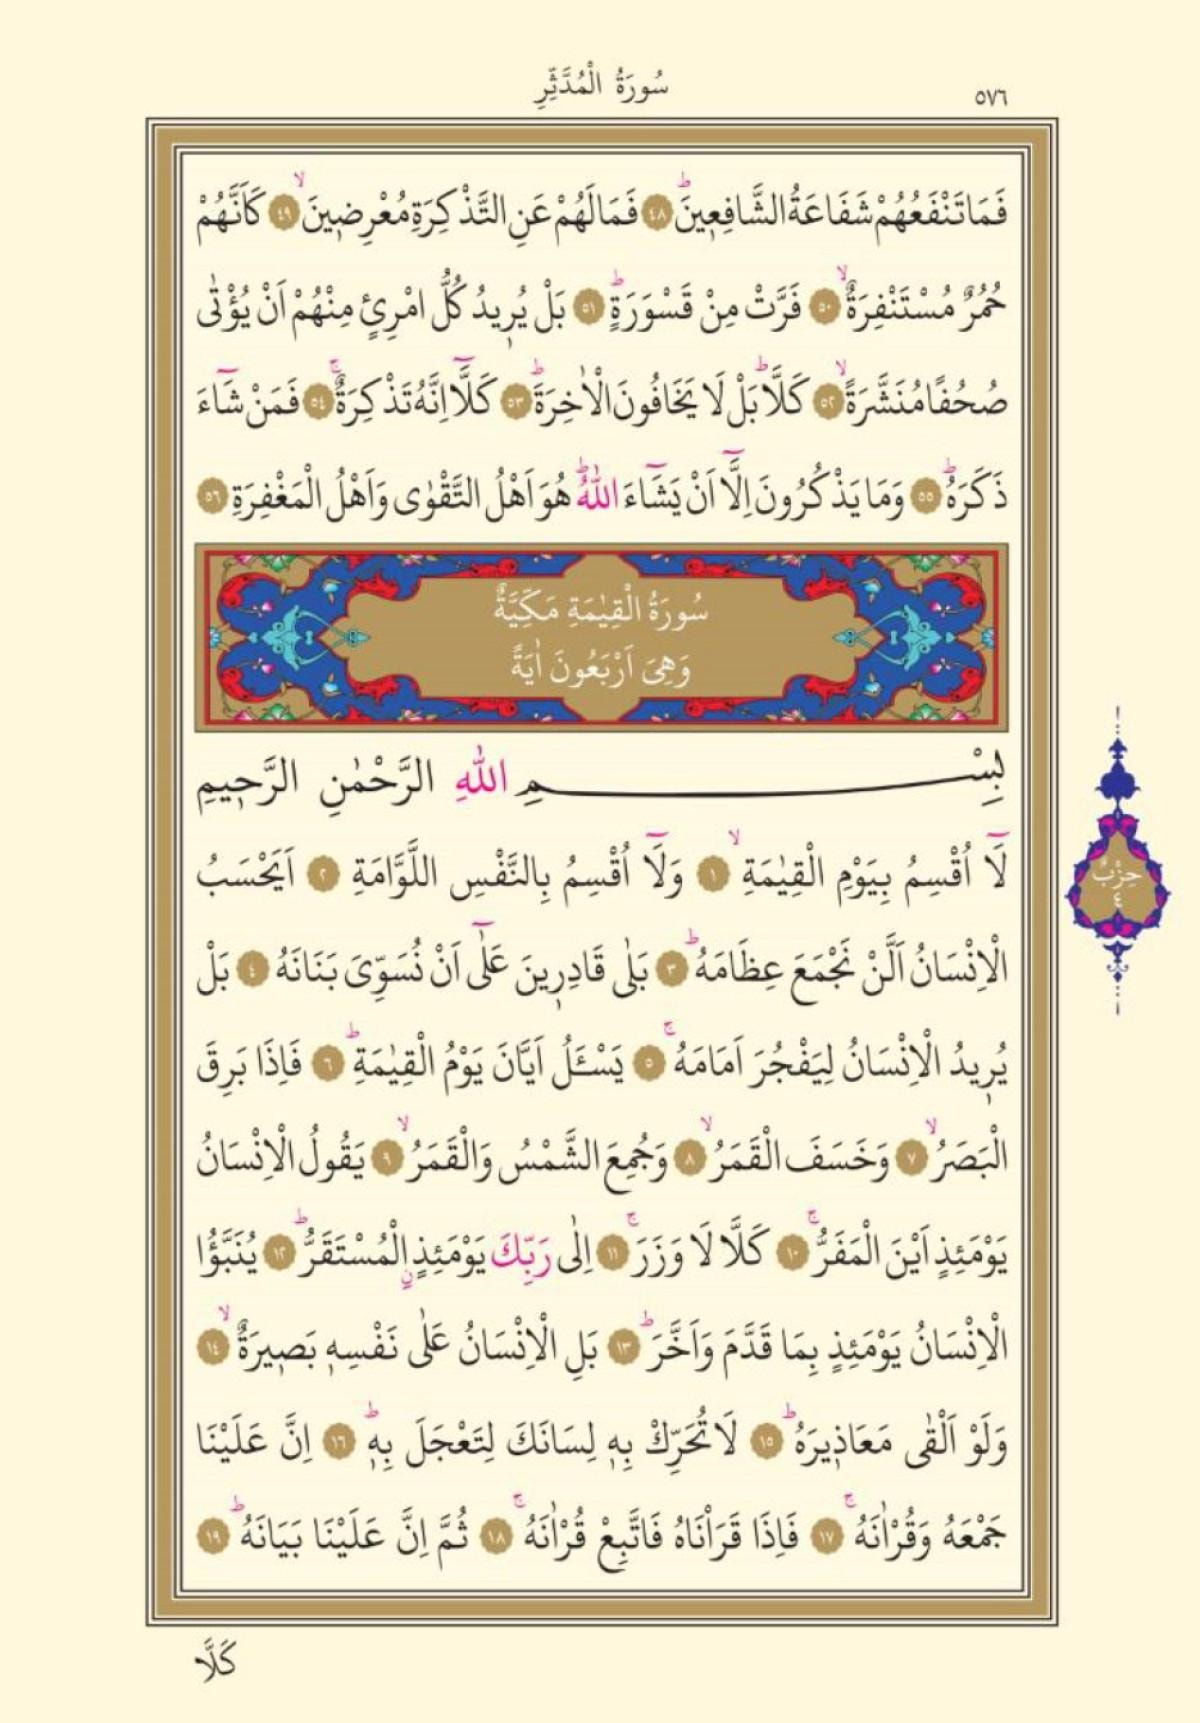 ٥٧٦
سُورَةُ الْمُدَّثِّرِ
فَمَا تَنْفَعُهُمْ شَفَاعَةُ الشَّافِع۪ينَۜ ٤٨ فَمَا لَهُمْ عَنِ التَّذْكِرَةِ مُعْرِض۪ينَۙ ٤٩ كَاَنَّهُمْ
حُمُرٌ مُسْتَنْفِرَةٌۙ ٥٠ فَرَّتْ مِنْ قَسْوَرَةٍۜ ٥١ بَلْ يُر۪يدُ كُلُّ امْرِئٍ مِنْهُمْ اَنْ يُؤْتٰى
صُحُفًا مُنَشَّرَةًۙ ٥٢ كَلَّاۜ بَلْ لَا يَخَافُونَ الْاٰخِرَةَۜ ٥٣ كَلَّٓا اِنَّهُ تَذْكِرَةٌۚ ٥٤ فَمَنْ شَٓاءَ
ذَكَرَهُۜ ٥٥ وَمَا يَذْكُرُونَ اِلَّٓا اَنْ يَشَٓاءَ اللّٰهُۜ هُوَ اَهْلُ التَّقْوٰى وَاَهْلُ الْمَغْفِرَةِ ٥٦
سُورَةُ الْقِيٰمَةِ مَكِّيَّةٌ
وَهِيَ اَرْبَعُونَ اٰيَةً
بِسْمِ اللّٰهِ الرَّحْمٰنِ الرَّح۪يمِ
لَٓا اُقْسِمُ بِيَوْمِ الْقِيٰمَةِۙ ١ وَلَٓا اُقْسِمُ بِالنَّفْسِ اللَّوَّامَةِ ٢ اَيَحْسَبُ
حِزْبٌ
٤
الْاِنْسَانُ اَلَّنْ نَجْمَعَ عِظَامَهُۜ ٣ بَلٰى قَادِر۪ينَ عَلٰٓى اَنْ نُسَوِّيَ بَنَانَهُ ٤ بَلْ
يُر۪يدُ الْاِنْسَانُ لِيَفْجُرَ اَمَامَهُۚ ٥ يَسْـَٔلُ اَيَّانَ يَوْمُ الْقِيٰمَةِۜ ٦ فَاِذَا بَرِقَ
الْبَصَرُۙ ٧ وَخَسَفَ الْقَمَرُۙ ٨ وَجُمِعَ الشَّمْسُ وَالْقَمَرُۙ ٩ يَقُولُ الْاِنْسَانُ
يَوْمَئِذٍ اَيْنَ الْمَفَرُّۚ ١٠ كَلَّا لَا وَزَرَۚ ١١ اِلٰى رَبِّكَ يَوْمَئِذٍۨ الْمُسْتَقَرُّۜ ١٢ يُنَبَّؤُا
الْاِنْسَانُ يَوْمَئِذٍ بِمَا قَدَّمَ وَاَخَّرَۜ ١٣ بَلِ الْاِنْسَانُ عَلٰى نَفْسِه۪ بَص۪يرَةٌۙ ١٤
وَلَوْ اَلْقٰى مَعَاذ۪يرَهُۜ ١٥ لَا تُحَرِّكْ بِه۪ لِسَانَكَ لِتَعْجَلَ بِه۪ۜ ١٦ اِنَّ عَلَيْنَا
جَمْعَهُ وَقُرْاٰنَهُۚ ١٧ فَاِذَا قَرَاْنَاهُ فَاتَّبِعْ قُرْاٰنَهُۚ ١٨ ثُمَّ اِنَّ عَلَيْنَا بَيَانَهُۜ ١٩
كَلَّا